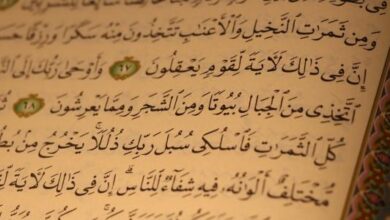 وَمِن ثَمَرَٰتِ ٱلنَّخِيلِ وَٱلْأَعْنَٰبِ تَتَّخِذُونَ مِنْهُ سَكَرًا وَرِزْقًا حَسَـ
إِنَّ فِى ذَٰلِكَ لَءَايَةً لِّقَوْمٍ يَعْقِلُونَ ٦٧ وَأَوْحَىٰ رَبُّكَ إِلَى ٱلنَّـ
ٱتَّخِذِى مِنَ ٱلْجِبَالِ بُيُوتًا وَمِنَ ٱلشَّجَرِ وَمِمَّا يَعْرِشُونَ ٦٨
كُلِّ ٱلثَّمَرَٰتِ فَٱسْلُكِى سُبُلَ رَبِّكِ ذُلُلًا ۚ يَخْرُجُ مِنۢ بُطُـ
مُّخْتَلِفٌ أَلْوَٰنُهُۥ فِيهِ شِفَآءٌ لِّلنَّاسِ ۗ إِنَّ فِى ذَٰلِكَ لَءَايَةً لِّقَـ